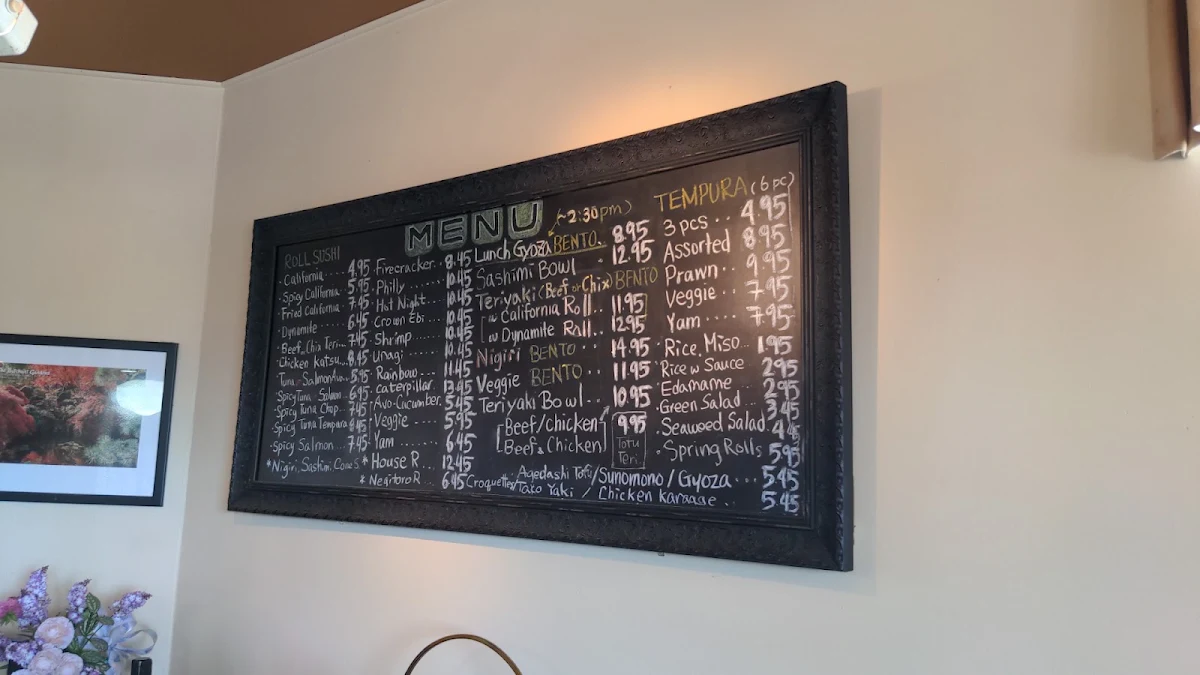 MENU
ROLL SUSHI
California .... 4.95
Spicy California .. 5.95
Fried California .. 7.45
Dynamite .... 6.45
Beef, Chix Teri.. 7.45
Chicken Katsu... 8.45
5.95
Spicy Tuna, Salmon 6.95
Spicy Tuna Chop.. 7.45
Spicy Tuna Tempura 8.45
Spicy Salmon ... 7.45
*Nigiri, Sashimi, Cones
Firecracker.. 8.45
Philly ..... 10.45
Hot Night... 10.45
Crown Ebi ... 10.45
Shrimp ..... 10.45
Unagi ..... 10.45
Rainbow... 11.45
Caterpillar. 13.45
Avo-Cucumber. 5.45
Veggie .... 5.95
Yam ..... 6.45
*House R... 12.45
*Negitoro R.. 6.45
(~2:30pm)
Lunch Gyoza BENTO. 8.95
Sashimi Bowl . 12.95
Teriyaki (Beef or Chix) BENTO
w California Roll.. 11.95
w Dynamite Roll.. 12.95
Nigiri BENTO .. 14.95
Veggie BENTO .. 11.95
Teriyaki Bowl... 10.95
Beef/chicken 9.95
Beef & Chicken
Tofu
Teri.
TEMPURA (6 pc)
3 pcs .. 4.95
Assorted 8.95
Prawn.. 9.95
Veggie .. 7.95
Yam .. 7.95
Rice, Miso.. 1.95
Rice w Sauce 2.95
Edamame 2.95
Green Salad. 3.45
Seaweed Salad.
Spring Rolls 5.95
Agedashi Tofu/Sunomono/Gyoza... 5.45
Croquette/Tako Yaki / Chicken Karaage.. 5.45